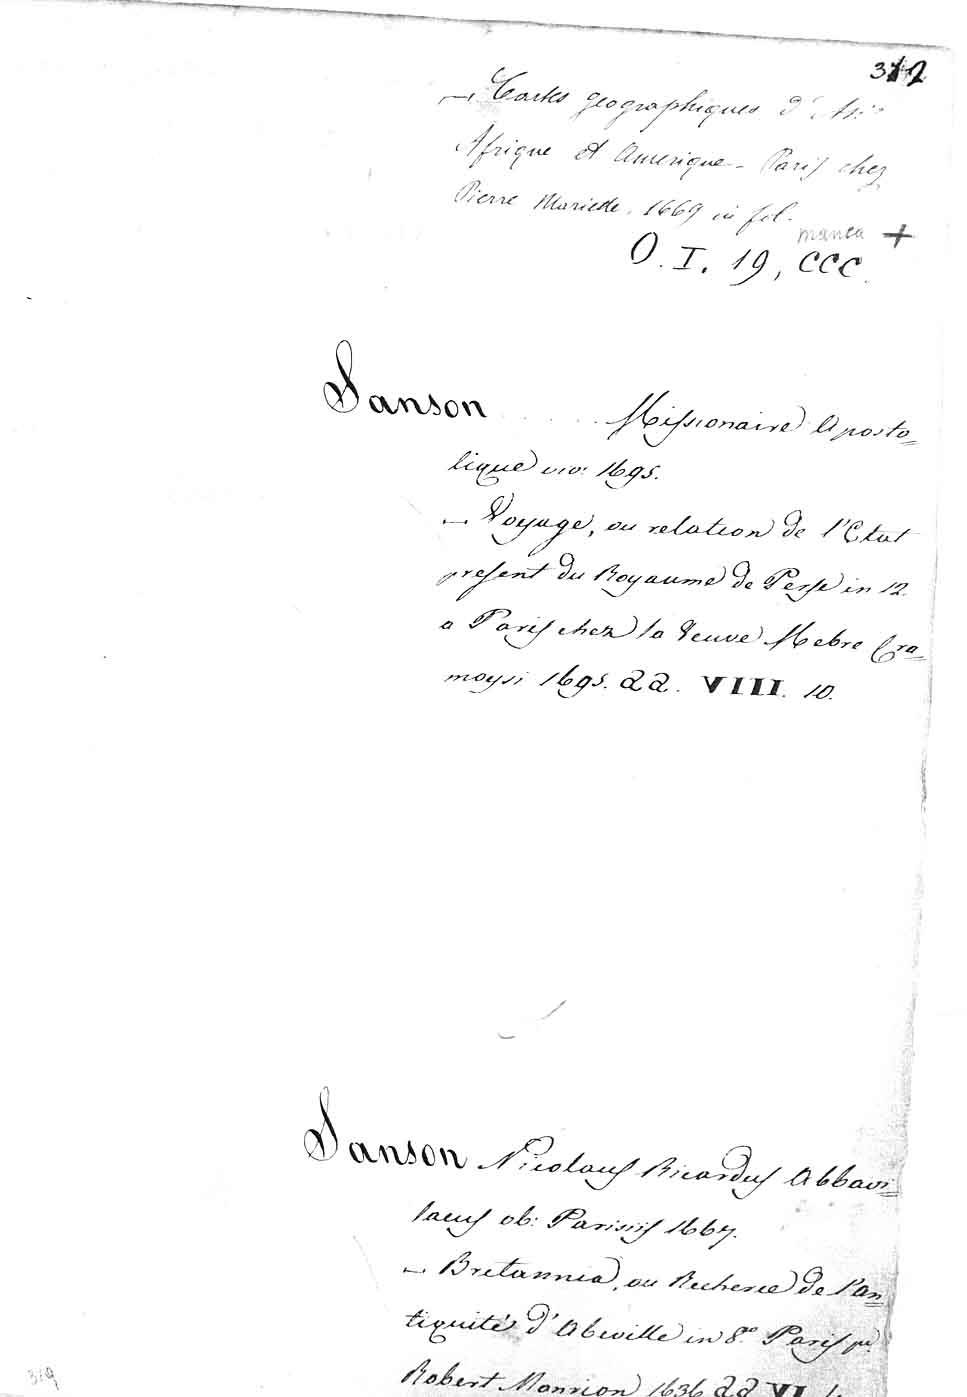 312
— Cartes geographiques d'Asie
Afrique et Amerique - Paris chez
Pierre Mariette. 1669 in fol.
manca +
O. I. 19, CCC.
Sanson ..... Missionaire Aposto=
lique viv: 1695.
— Voyage, ou relation de l'Etat
present du Royaume de Perse in 12.
a Paris chez la Veuve Mebre Cra=
moysi 1695. aa. VIII. 10.
Sanson Nicolaus Ricardus Abbavi=
laeus ob: Parisiis 1667.
— Britannia, ou Recherce de l'an=
tiquité d'Abeville in 8.° Paris pr.
Robert Monrion 1636 aa VI
319